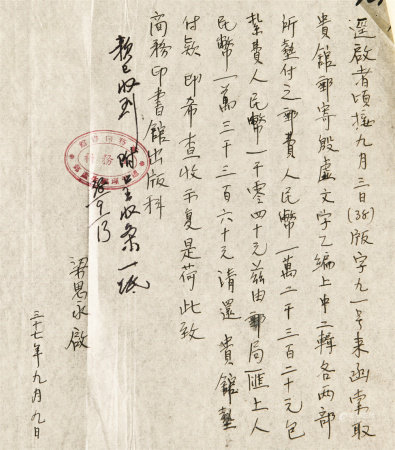 逕啟者頃接九月三日(38)版字九一号来函索取
貴館郵寄殷虚文字乙編上中二輯各两部
所墊付之郵費人民幣一萬二千三百二十元包
紮費人民幣一千零四十元茲由郵局匯上人
民幣一萬三千三百六十元清還 貴館墊
付款 即希查收示复是荷 此致
商務印書館出版科
梁思永啟
三十七年九月九日
款已收到 附上收条一紙
38/9/13